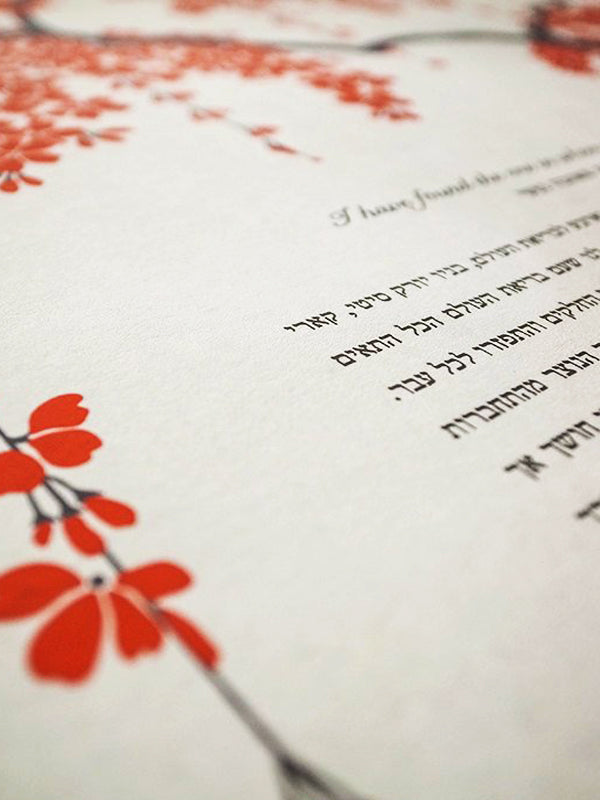 I have found the one in whom
לבריאת העולם, בניו יורק סיטי, קארי
לך שעם בריאת העולם הכל התאים
החלקים והתפזרו לכל עבר.
הנוצר מהתחברות
חושך אך